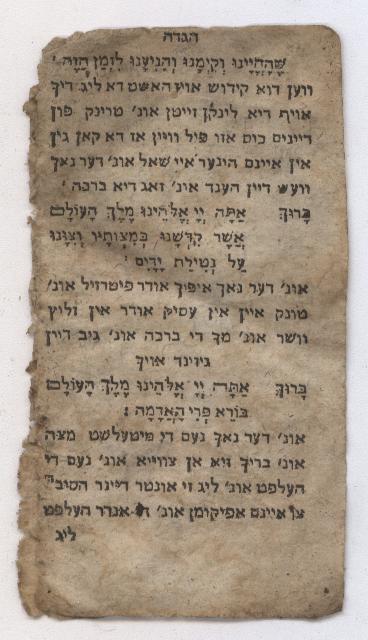 הגדה
שֶׁהֶחֱיָינוּ וְקִיְמָנוּ וְהִגִיעָנוּ לִזְמַן הַזֶּה׳
ווען דוא קידוש אויז האשט דא ליג דיך
אויף דיא לינקן זייטן אונ׳ טרינק פון
דיינים כוס אזו פיל וויין אז דא קאן גין
אין איינם הינער איי שאל אונ׳ דער נאך
וועש דיין הענד אונ׳ זאג דיא ברכה׳
בָּרוּךְ אַתָּה יְיָ אֱלֹהֵינוּ מֶלֶךְ הָעוֹלָם
אֲשֶׁר קִדְשָׁנוּ בְּמִצְוֹתָיו וְצִוָּנוּ
עַל נְטִילַת יָדַיִם׳
אונ׳ דער נאך איפיך אודר פיטרזיל אונ׳
טונק איין אין עסיק אודר אין זלץ
וושר אונ׳ מך די ברכה אונ׳ גיב דיין
גיזינד אויך
בָּרוּךְ אַתָּה יְיָ אֱלֹהֵינוּ מֶלֶךְ הָעוֹלָם
בּוֹרֵא פְּרִי הָאֲדָמָה׃
אונ׳ דער נאך נעם די מיטעלשט מצה
אונ׳ בריך זיא אן צווייא אונ׳ נעם די
העלפט אונ׳ ליג זי אונטר דיינר הסיב״
צו איינם אפיקומן אונ׳ די אנדר העלפט
ליג